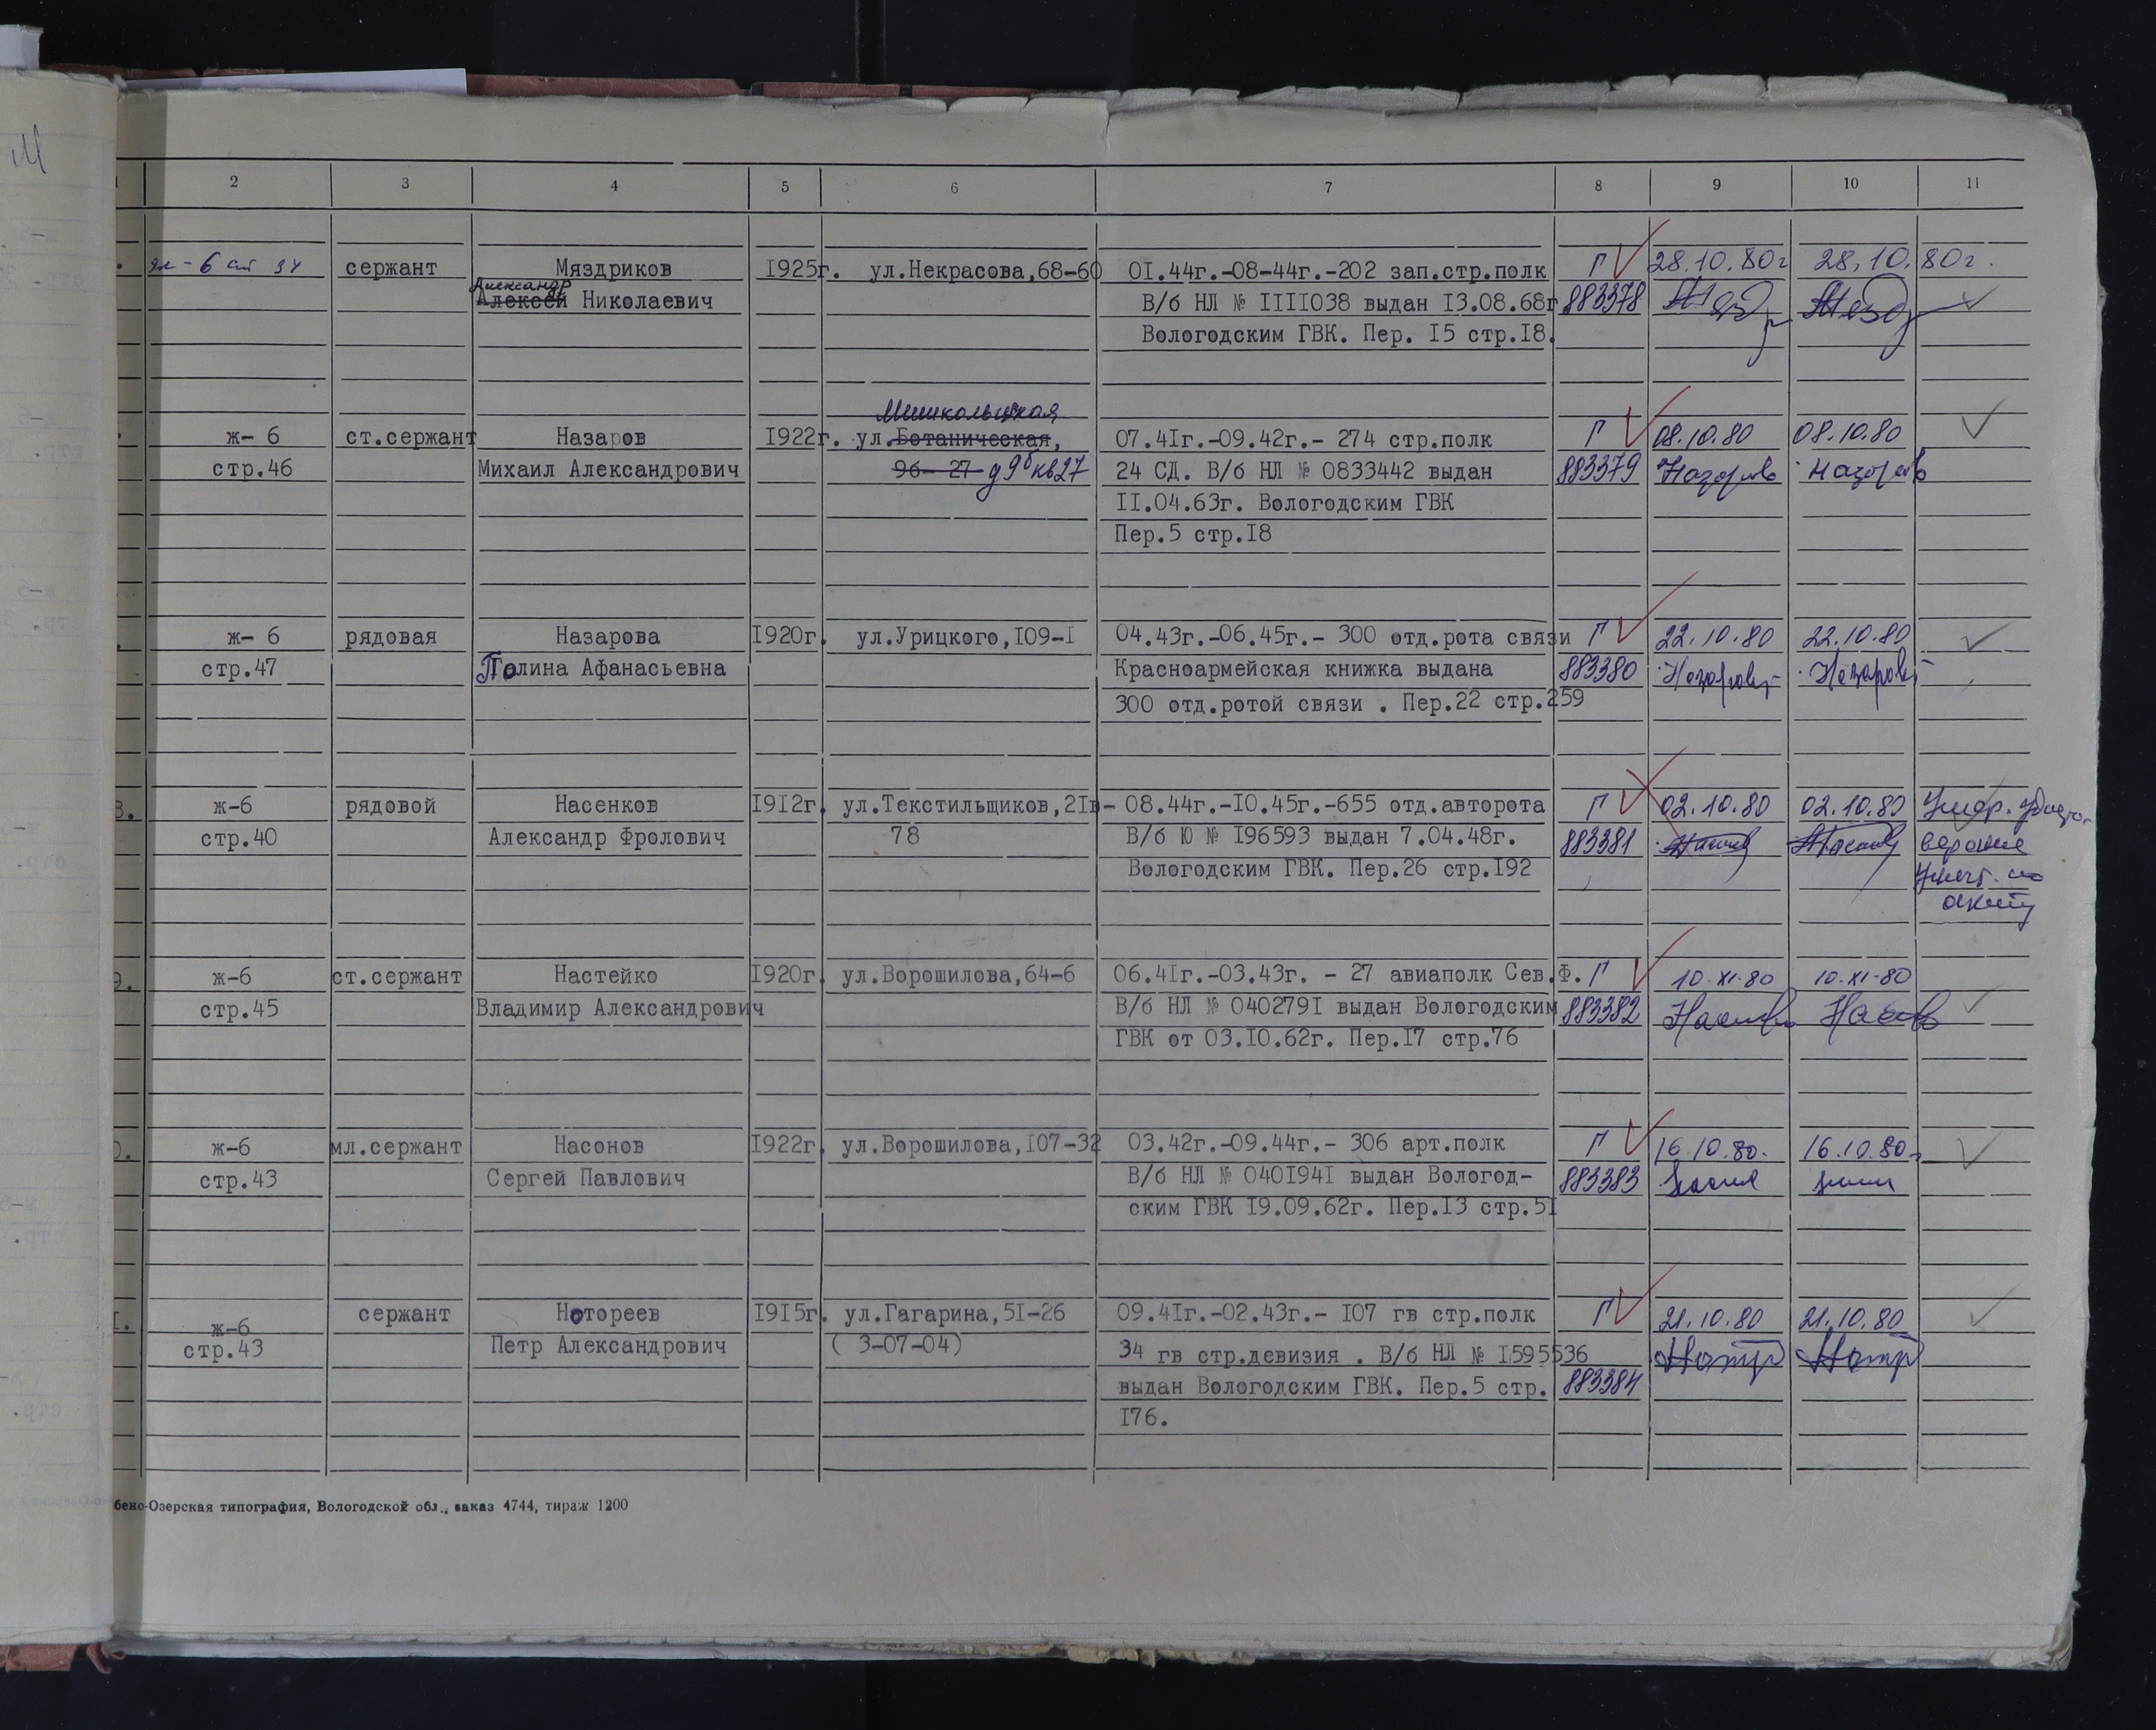 2 3 4 5 6 7 8 9 10 11
ж-6 ст 34 сержант Мяздриков 1925г. ул.Некрасова,68-60 01.44г.-08-44г.-202 зап.стр.полк Г 28.10.80г 28.10.80г.
Александр
Алексей Николаевич В/б НЛ № 1111038 выдан 13.08.68г 883378
Вологодским ГВК. Пер. 15 стр.18.
Мишкольцкая
ж- 6 ст.сержант Назаров 1922г. ул.Ботаническая, 07.41г.-09.42г.- 274 стр.полк Г 08.10.80 08.10.80
стр.46 Михаил Александрович 96- 27 д 9б кв27 24 СД. В/б НЛ № 0833442 выдан 883379
11.04.63г. Вологодским ГВК
Пер.5 стр.18
ж- 6 рядовая Назарова 1920г. ул.Урицкого,109-1 04.43г.-06.45г.- 300 отд.рота связи Г 22.10.80 22.10.80
стр.47 Полина Афанасьевна Красноармейская книжка выдана 883380
300 отд.ротой связи . Пер.22 стр.259
8. ж-6 рядовой Насенков 1912г. ул.Текстильщиков,21в- 08.44г.-10.45г.-655 отд.авторота Г 02.10.80 02.10.80
стр.40 Александр Фролович 78 В/б Ю № 196593 выдан 7.04.48г. 883381
Вологодским ГВК. Пер.26 стр.192
акту
9. ж-6 ст.сержант Настейко 1920г. ул.Ворошилова,64-6 06.41г.-03.43г. - 27 авиаполк Сев.Ф. Г 10.XI-80 10.XI-80
стр.45 Владимир Александрович В/б НЛ № 0402791 выдан Вологодским 883382
ГВК от 03.10.62г. Пер.17 стр.76
0. ж-6 мл.сержант Насонов 1922г. ул.Ворошилова,107-32 03.42г.-09.44г.- 306 арт.полк Г 16.10.80. 16.10.80г
стр.43 Сергей Павлович В/б НЛ № 0401941 выдан Вологод- 883383
ским ГВК 19.09.62г. Пер.13 стр.51
1. ж-6 сержант Нотореев 1915г. ул.Гагарина,51-26 09.41г.-02.43г.- 107 гв стр.полк Г 21.10.80 21.10.80
стр.43 Петр Александрович ( 3-07-04) 34 гв стр.девизия . В/б НЛ № 1595536
выдан Вологодским ГВК. Пер.5 стр. 883384
176.
бено-Озерская типография, Вологодской обл., заказ 4744, тираж 1200